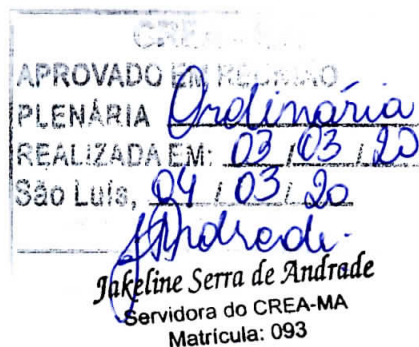 CREA-MA
APROVADO EM REUNIÃO
PLENÁRIA Ordinária
REALIZADA EM: 03 / 03 / 20
São Luís, 04 / 03 / 20
Andrade.
Jakeline Serra de Andrade
Servidora do CREA-MA
Matrícula: 093